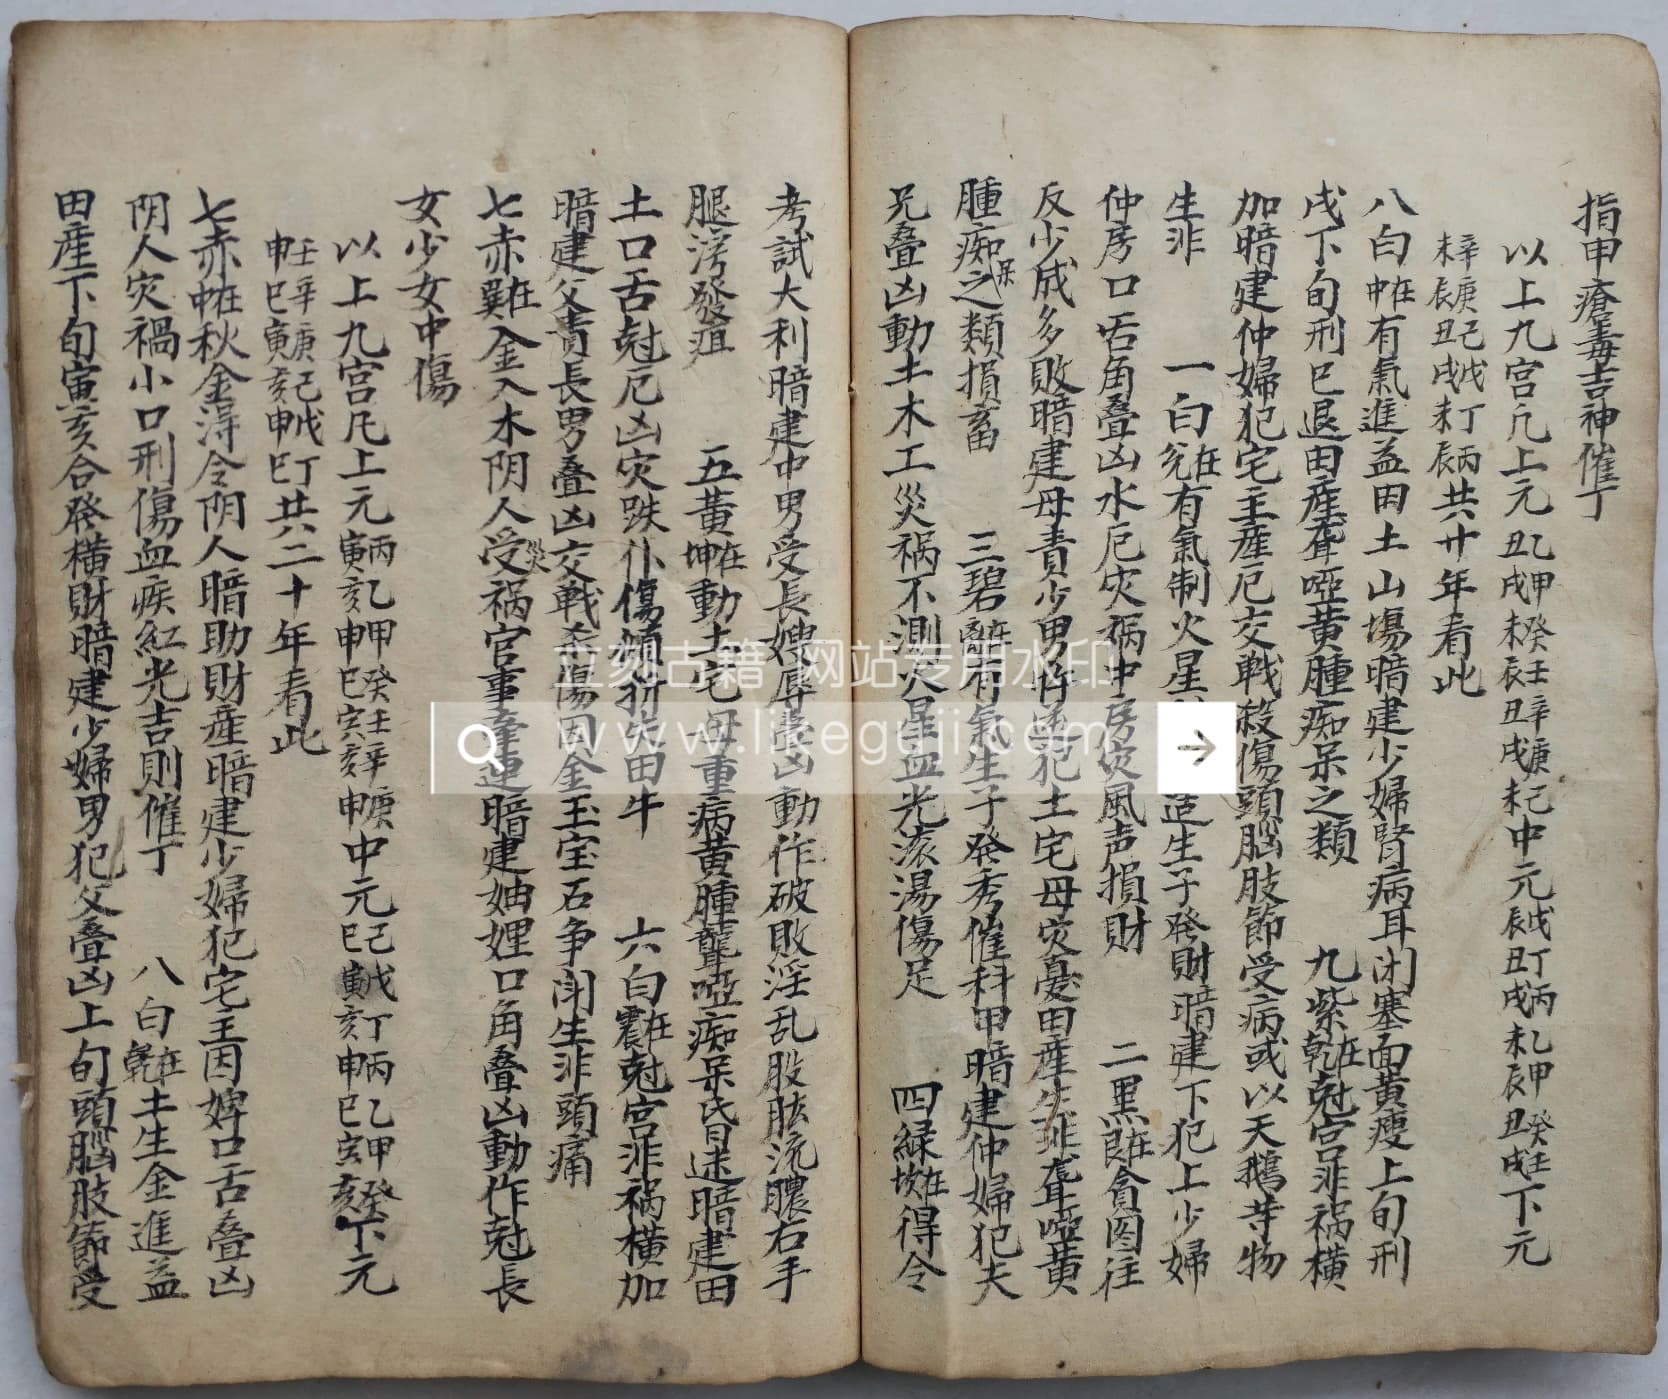 指甲瘡毒吉神催丁
以上九宫凢上元乙丑甲戌癸未壬辰辛丑庚戌己未中元戊辰丁丑丙戌乙未甲辰癸丑壬戌下元
辛未庚辰己丑戊戌丁未丙辰共廿年看此
八白在中有氣進益田土山塲暗建少婦腎病耳闭塞面黄瘦上旬刑
戌下旬刑巳退田產聋啞黄腫痴呆之類　九紫在乾尅宫非祸橫
加暗建仲婦犯宅主産厄交戰殺傷頭腦肢節受病或以天鵝等物
生非　一白在兌有氣制火星造生子發財暗建下犯上少婦
仲房口舌角叠凶水厄灾祸中房灾風声損財　二黑在艮貪图往
反少成多敗暗建母責少男性愚犯土宅母灾憂田産生非聋啞黄
腫痴呆之類損畜　三碧在離有氣生子發秀催科甲暗建仲婦犯夫
兄叠凶動土木工災祸不測火星血光滚湯傷足　四緑在坎得令
考試大利暗建中男受長嫂辱叠凶動作破敗淫乱股肱流膿右手
腿湧發疽　五黄在坤動土宅母重病黄腫聾啞痴呆昏迷暗建田
土口舌尅厄凶灾跌仆傷頰折失田牛　六白在震尅宫非祸橫加
暗建父責長男叠凶交戰杀傷因金玉宝石争闹生非頭痛
七赤在巽金入木阴人受災祸官事牽連暗建妯娌口角叠凶動作尅長
女少女中傷
以上九宫凡上元丙寅乙亥甲申癸巳壬寅辛亥庚申中元己巳戊寅丁亥丙申乙巳甲寅癸亥下元
壬申辛巳庚寅己亥戊申丁巳共二十年看此
七赤在中秋金得令阴人暗助財産暗建少婦犯宅主因婢口舌叠凶
阴人灾禍小口刑傷血疾紅光吉則催丁　八白在乾土生金進益
田産下旬寅亥合發橫財暗建少婦男犯父叠凶上旬頭腦肢節受
立刻古籍 网站专用水印
www.likeguji.com